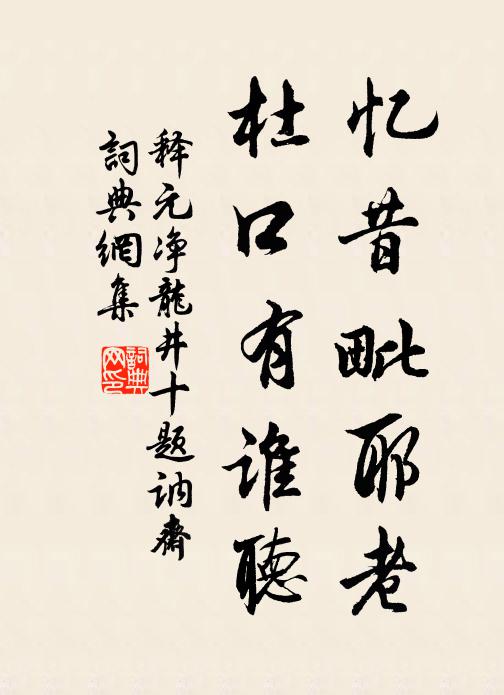 忆昔毗耶老
杜口有谁聴
释元净龍井十题讷齋
詞典網集
詞典网印